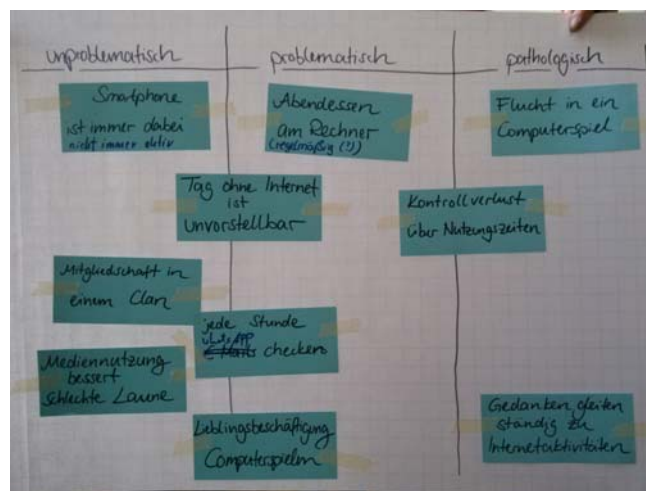 unproblematisch
problematisch
pathologisch
Smartphone
ist immer dabei
nicht immer aktiv
Abendessen
am Rechner
(regelmäßig (!))
Flucht in ein
Computerspiel
Tag ohne Internet
ist
unvorstellbar
Kontrollverlust
über Nutzungszeiten
Mitgliedschaft in
einem Clan
jede Stunde
WhatsApp
checken
Mediennutzung
bessert
schlechte Laune
Lieblingsbeschäftigung
Computerspielen
Gedanken gleiten
ständig zu
Internetaktivitäten